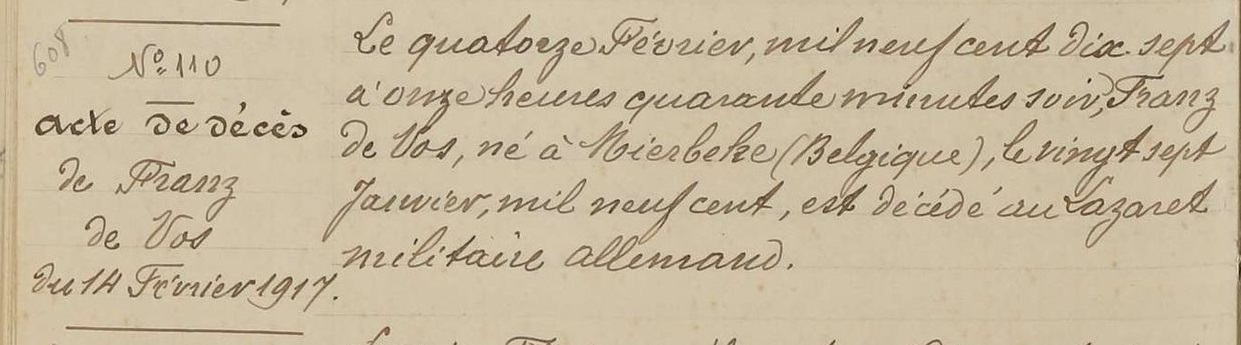 608
N° 110
acte de décès
de Franz
de Vos
du 14 Février 1917.
Le quatorze Février, mil neuf cent dix-sept
à onze heures quarante minutes soir, Franz
de Vos, né à Mierbeke (Belgique), le vingt sept
Janvier, mil neuf cent, est décédé au Lazaret
militaire allemand.